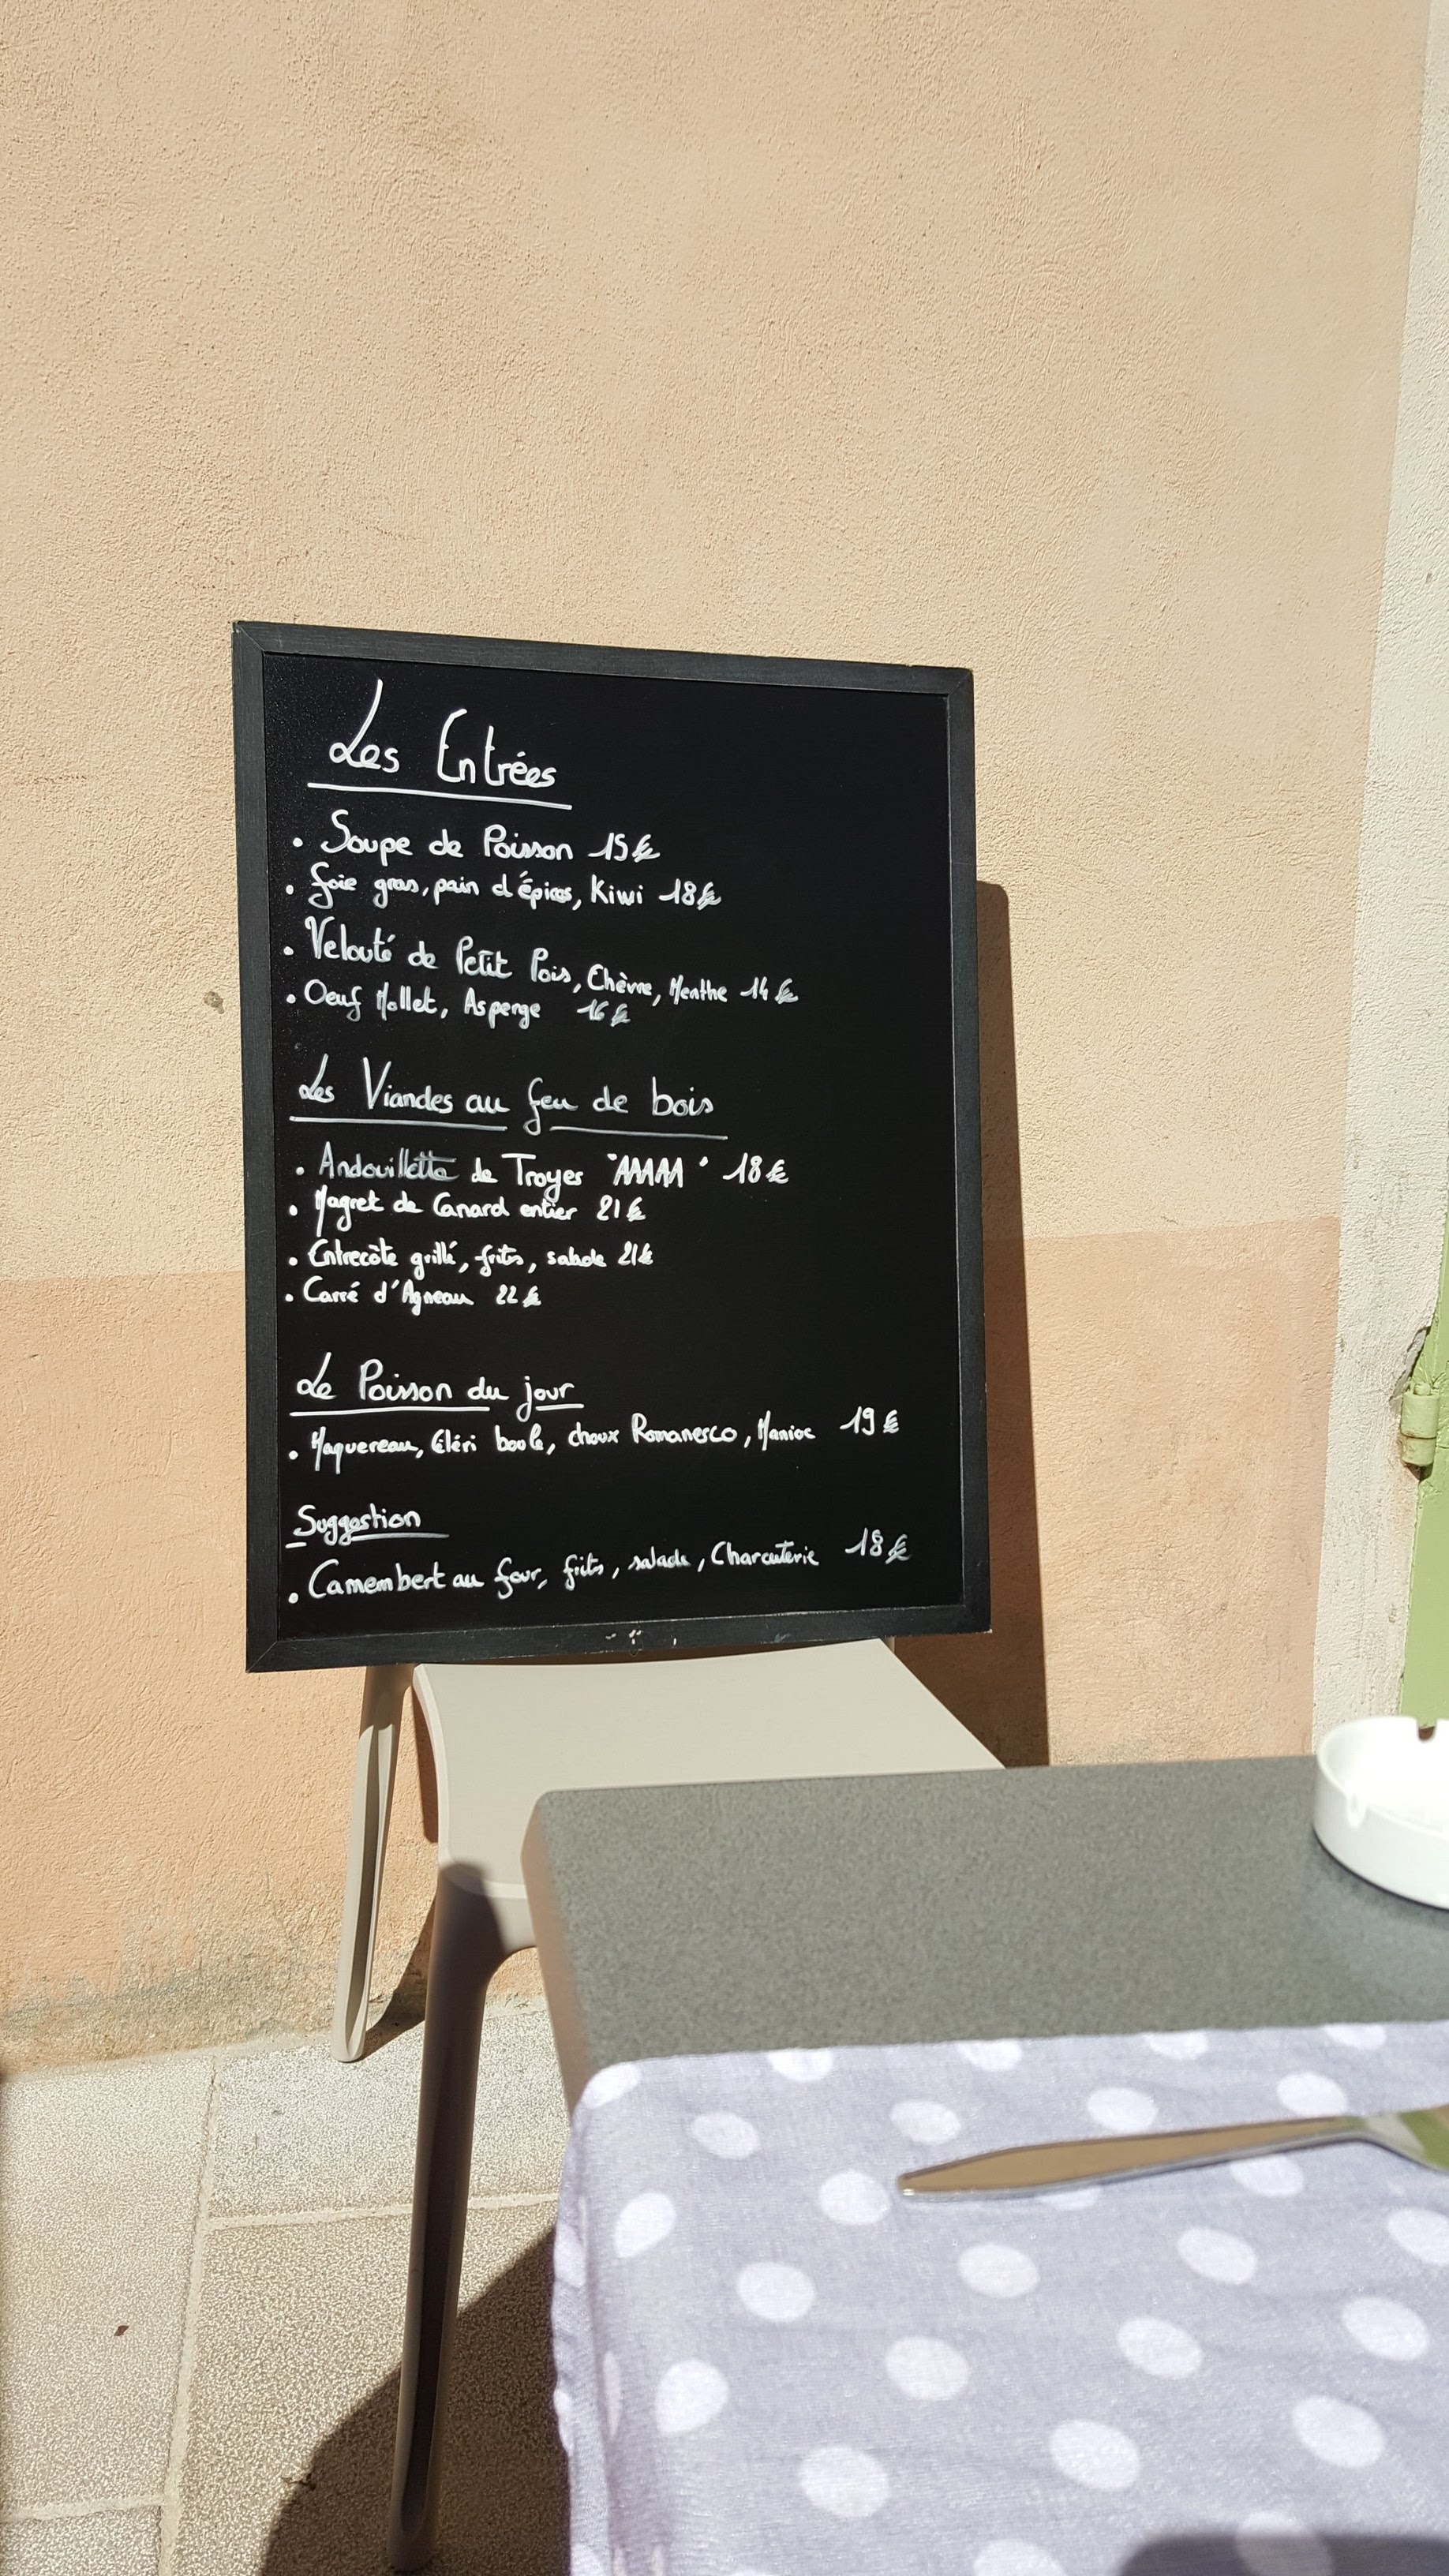 Les Entrées
• Soupe de Poisson 15€
• foie gras, pain d'épices, Kiwi 18€
• Velouté de Petit Pois, Chèvre, Menthe 14€
• Oeuf Mollet, Asperge 16€
Les Viandes au feu de bois
• Andouillette de Troyes "AAAAA" 18€
• Magret de Canard entier 21€
• Entrecôte grillé, frites, salade 21€
• Carré d'Agneau 22€
Le Poisson du jour
• Maquereau, Céléri boule, choux Romanesco, Manioc 19€
Suggestion
• Camembert au four, frites, salade, Charcuterie 18€